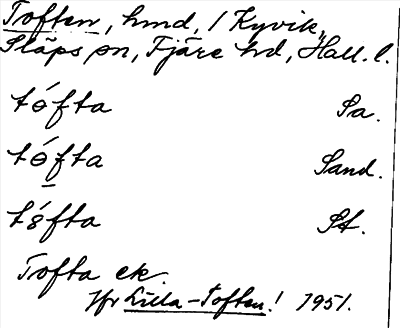 Toften, hmd, / Kyvik,
Släps sn, Fjäre hd, Hall. l.
tófta Sa.
tófta Sand.
tófta St.
Tofta ek.
Jfr Lilla-Toften! 1951.